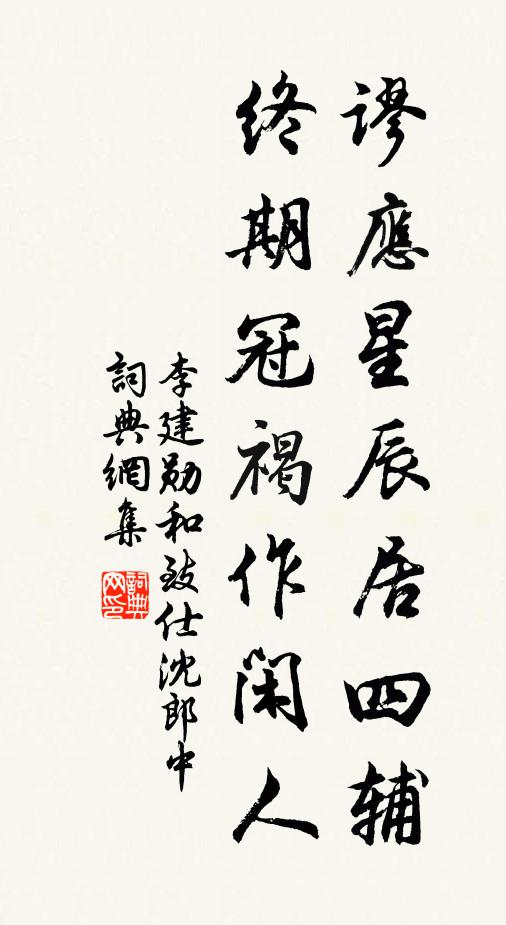 谬應星辰居四辅
终期冠褐作闲人
李建勋和致仕沈郎中
詞典網集
詞典网印